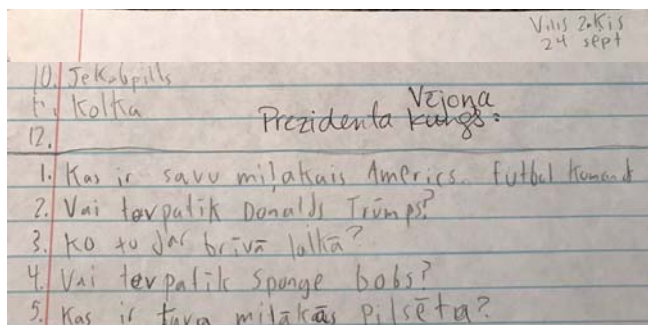 Vilis Zoķis
24 sept
10. Jekabpills
11. Kolka
12.
Vējoņa
Prezidenta kungs:
1. Kas ir savu miļakais Americs. futbol komand
2. Vai tev patik Donalds Trūmps?
3. Ko tu dar brīvā laikā?
4. Vai tev patik Sponge bobs?
5. Kas ir tava miļakās pilsēta?